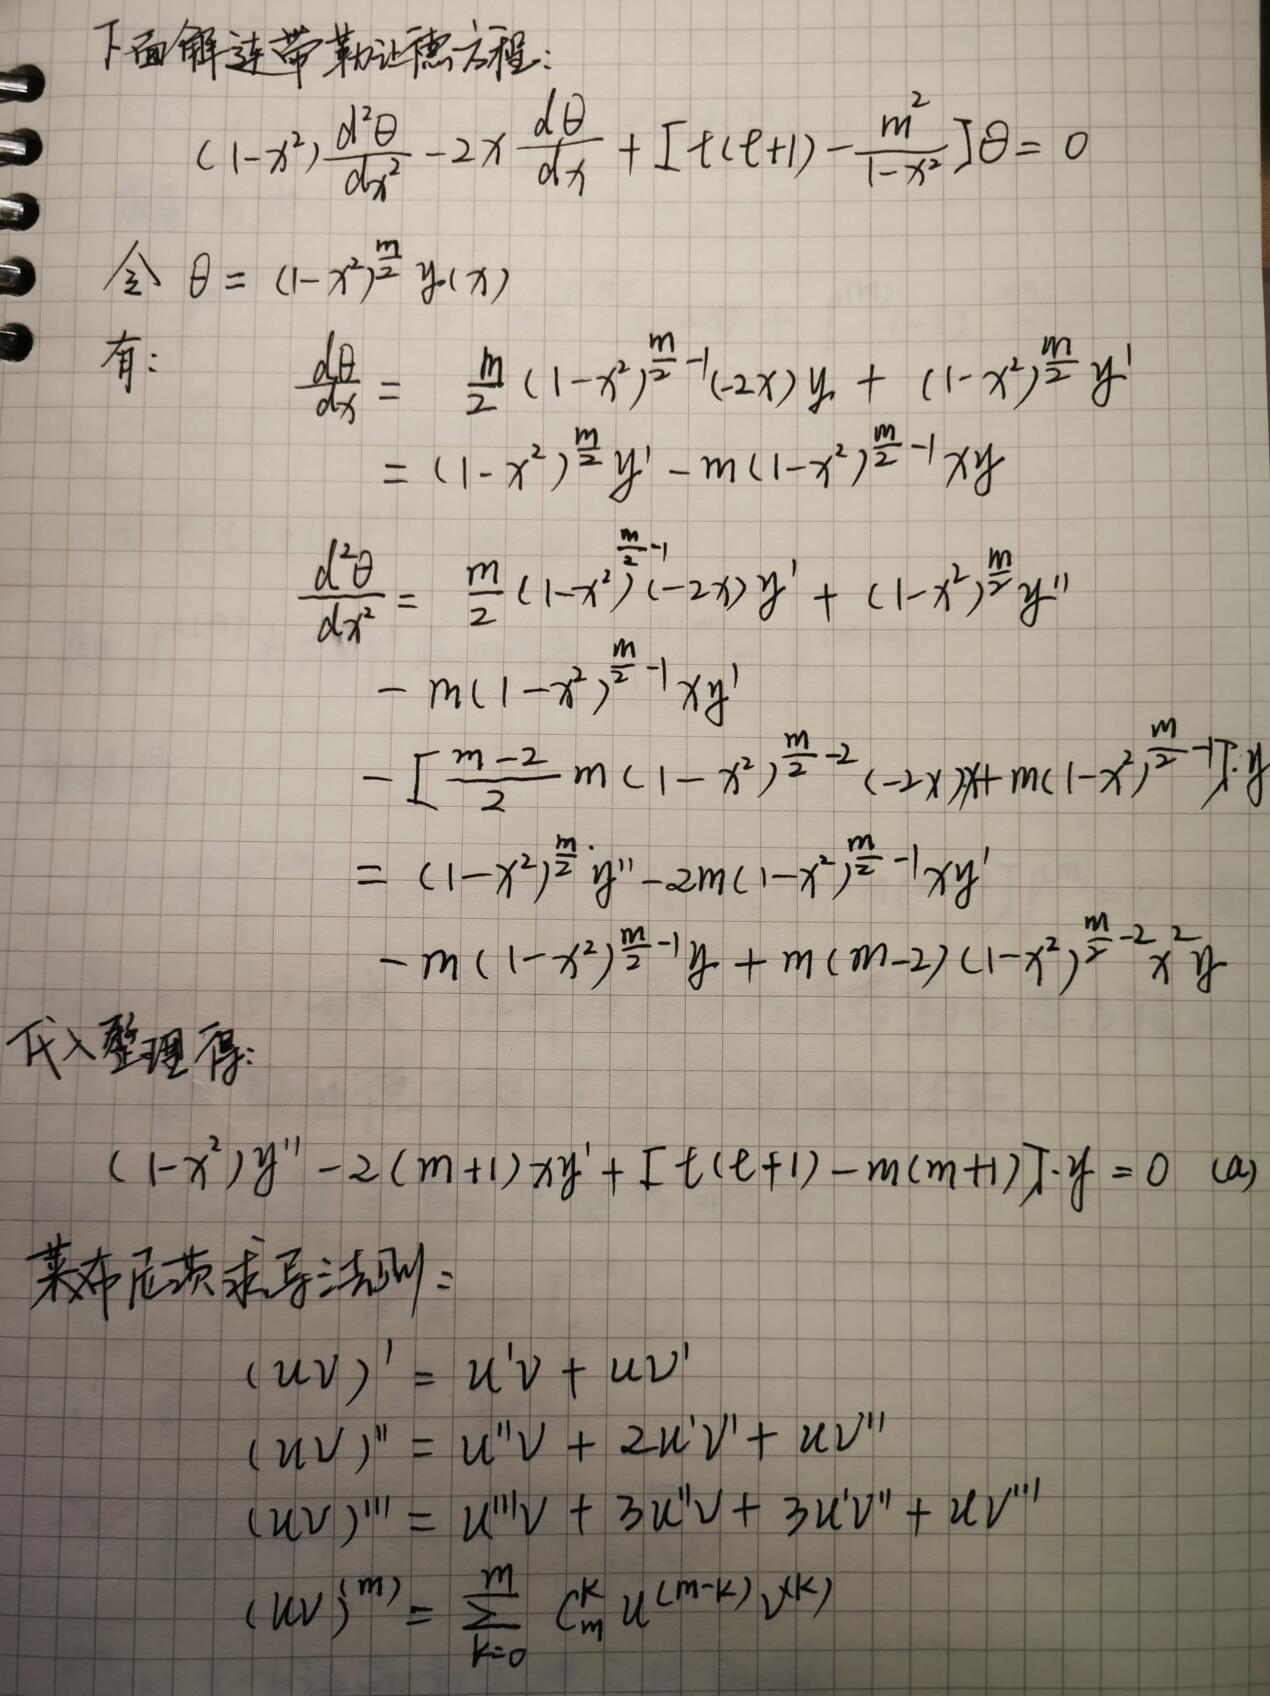 下面解连带勒让德方程:
(1-x²) d²θ/dx² - 2x dθ/dx + [ℓ(ℓ+1) - m²/(1-x²)]θ = 0
令 θ = (1-x²)^(m/2) y(x)
有: dθ/dx = m/2 (1-x²)^(m/2 -1) (-2x) y + (1-x²)^(m/2) y'
= (1-x²)^(m/2) y' - m(1-x²)^(m/2 -1) xy
d²θ/dx² = m/2 (1-x²)^(m/2 -1) (-2x) y' + (1-x²)^(m/2) y''
- m(1-x²)^(m/2 -1) xy'
- [(m-2)/2 m(1-x²)^(m/2 -2) (-2x)x + m(1-x²)^(m/2 -1)]·y
= (1-x²)^(m/2)·y'' - 2m(1-x²)^(m/2 -1) xy'
- m(1-x²)^(m/2 -1) y + m(m-2)(1-x²)^(m/2 -2) x² y
代入整理得:
(1-x²)y'' - 2(m+1)xy' + [ℓ(ℓ+1) - m(m+1)]·y = 0 (a)
莱布尼茨求导法则:
(uv)' = u'v + uv'
(uv)'' = u''v + 2u'v' + uv''
(uv)''' = u'''v + 3u''v + 3u'v'' + uv'''
(uv)^(m) = Σ_{k=0}^{m} C_m^k u^(m-k) v^(k)